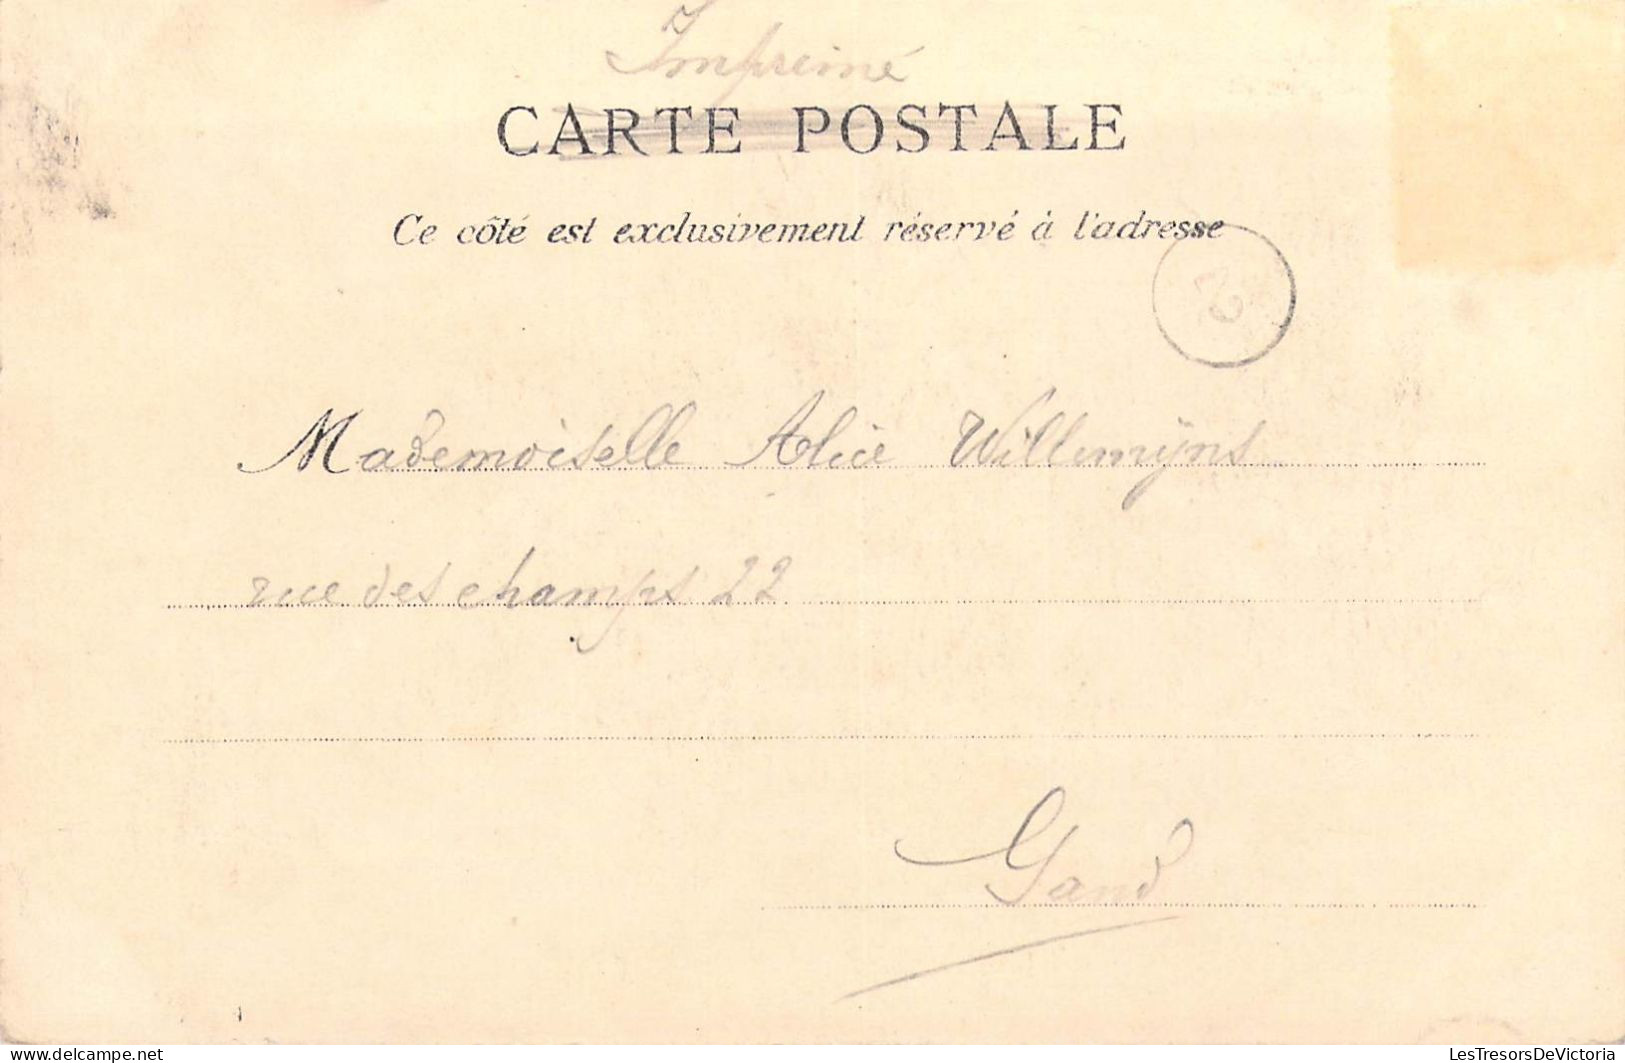 Imprimé
CARTE POSTALE
Ce côté est exclusivement réservé à l'adresse
Mademoiselle Alice Willemÿns
rue des champs 22
Gand
www.delcampe.net
LesTresorsDeVictoria